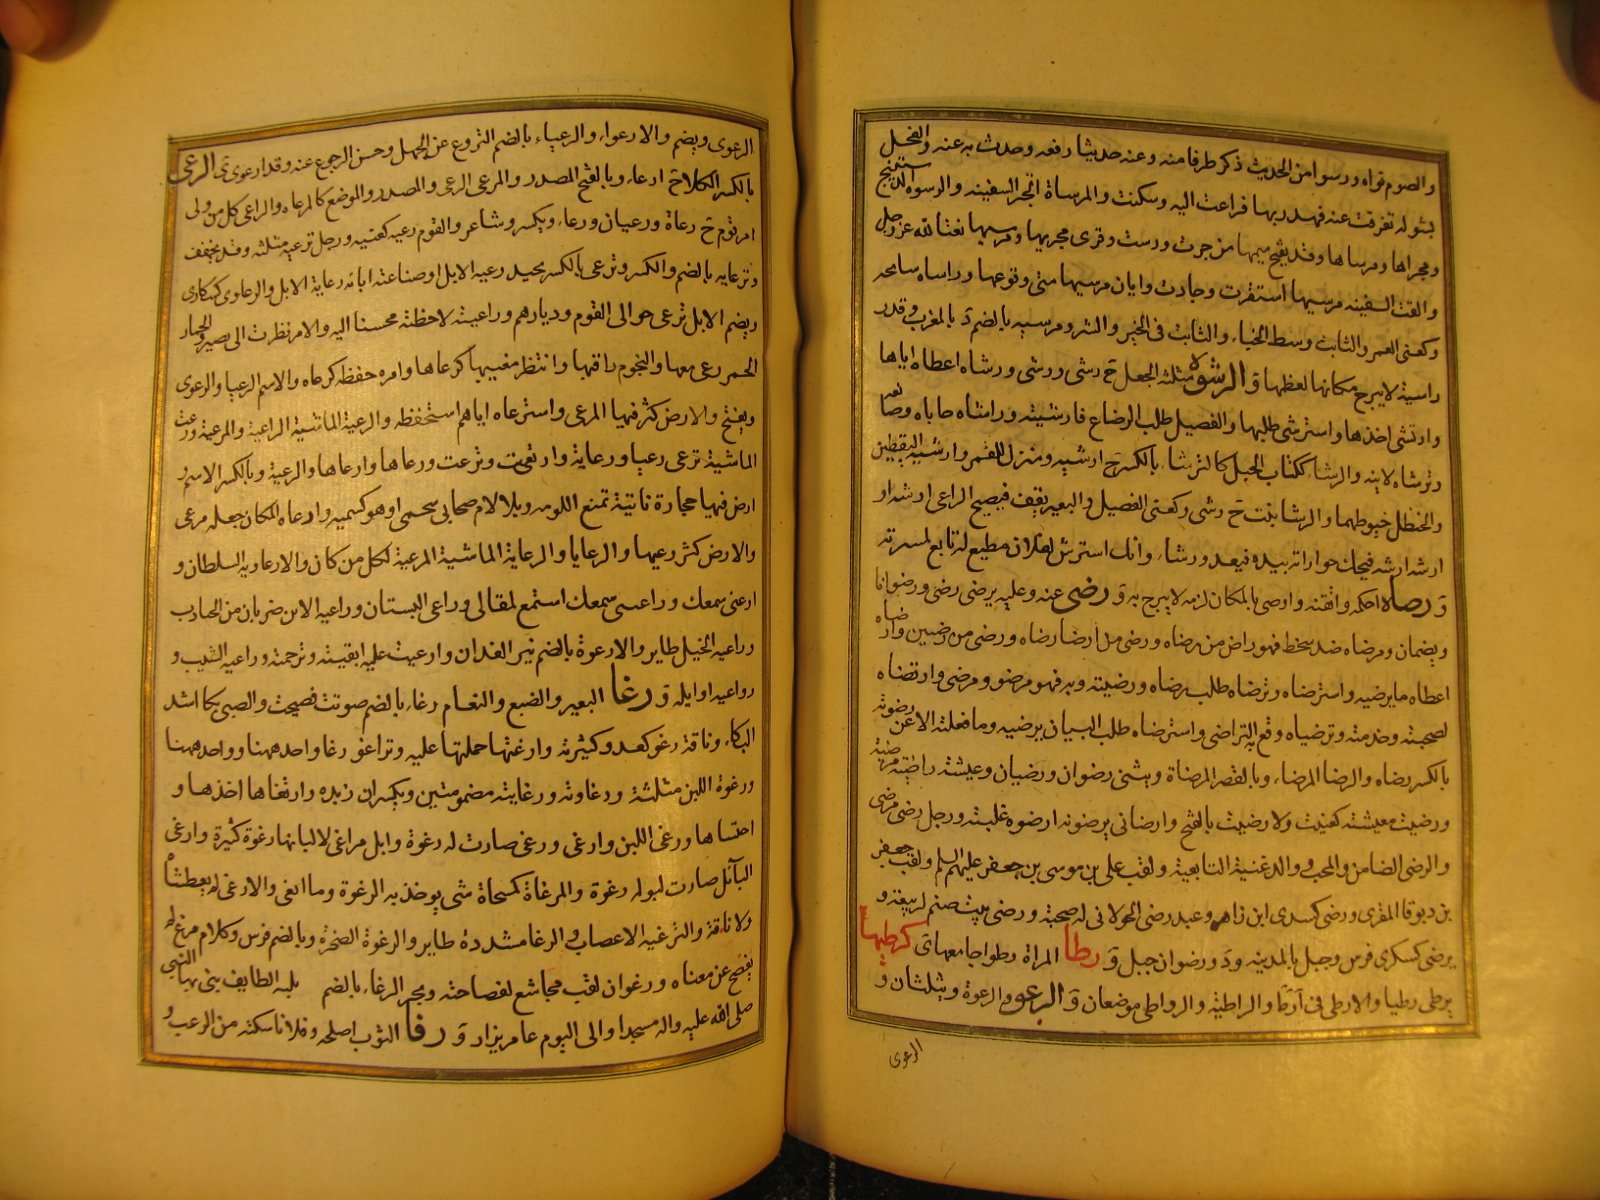 والصوم نواه ورسوا من الحديث ذكر طرفا منه وعنه حديثا رفعه وحدث به عنه والفحل
بشوله تفرقت عنه فهدر بها فراعت اليه وسكنت والمرساة انجر السفينه والرسوه الدستينج
ومجراها ومرساها وقد يفتح ميمها من جرت ورست وقرى مجريها ومرسيها نعتا لله عز وجل
والقت السفينه مرسيها استقرت وجادت وايان مرسيها متى وقوعها وراساه سابحه
وكغنى العمر والثابت وسط الخباء والثابت فى الخير والشر ومرسيه بالضم د بالمغرب وقدر
راسية لا يبرح مكانها لعظمها و الرشوة مثلثة الجعل ج رشى ورشى ورشاه اعطاه اياها
وارتشى اخذها واسترشى طلبها والفصيل طلب الرضاع فارشيته وراشاه حاباه وصانعه
وترشاه لاينه والرشاء ككتاب الحبل كالترشاء بالكسر ج ارشيه ومنزل للقمر وارشية اليقطين
والحنظل خيوطهما والرشا نبت ج رشى وكغنى الفصيل والبعير يقف فيصيح الراعى ارشه او
ارشه ارشه فيحك خورانه بيده فيعدو رشاء وانك استرش لفلان مطيع له تابع لمسرته
و رصاه احكمه واتقنه وارصى بالمكان لزمه لا يبرح به و رضى عنه وعليه يرضى رضى ورضوانا
ويضمان ومرضاه ضد سخط فهو راض من رضاه ورضى من ارضياء رضاه ورضى من رضين وارضاه
اعطاه ما يرضيه واسترضاه وترضاه طلب رضاه ورضيته وبه فهو مرضو ومرضى وارتضاه
لصحبته وخدمته وترضياه وقع به التراضى واسترضاه طلب اليه ان يرضيه وما فعلته الا عن رضوته
بالكسر رضاه والرضا المرضاء وبالقصر المرضاة ويثنى رضوان ورضيان وعيشته راضية مرضية
ورضيت معيشته كعنيت ولا رضيت بالفتح وارضانى يرضونه ارضوه غلبته ورجل رضى مرضى
والرضى الضامن والمحب والدغنية التابعية ولقب على بن موسى بن جعفر عليهم السلم ولقب جعفر
بن دبوقا المقرى ورضى كسدى ابن زاهر وعبد رضى الخولانى له صحبة ورضى بيت صنم لربيعه و
يرضى كسكرى فرس وجبل بالمدينه ود ورضوان جبل و رطا المراة رطوا جامعها ى كرطيها
يرطى رطيا والارطى فى ارط والراطية والرواطى موضعان و الرعو والرعوة ويثلثان و
الرعوى
الرعوى ويضم والارعواء والرعياء بالضم النزوع عن الجهل وحسن الرجوع عنه وقد ارعوى ى الرعى
بالكسر الكلا ج ارعاء وبالفتح المصدر والمرعى الرعى والمصدر والموضع كالمرعاه والراعى كل من ولى
امر قوم ج رعاة ورعيان ورعاء ويكسر وشاعر والقوم رعيه كغنيه ورجل ترعيه مثلثه وقد يخفف
وترعايه بالضم والكسر وترعى بالكسر يجيد رعيه الابل او صناعته ابائه رعاية الابل والرعاوى كسكارى
ويضم الابل ترعى حوالى القوم وديارهم وراعيته لاحظته محسنا اليه والامر نظرت الى يصير والحمار
الحمر رعى معها والنجوم راقبها وانتظر مغيبها كرعاها وامره حفظه كرعاه والاسم الرعيا والرعوى
ويفتح والارض كثر فيها المرعى واسترعاه اياهم استحفظه والرعية الماشية الراعية والمرعية ورعت
الماشية ترعى رعيا ورعاية وارتعت وترعت ورعاها وارعاها والرعية وبالكسر الاسم و
ارض فيها حجارة ناتية تمنع اللومه وبلا لام صحابى سحمى او هو كسميه وارعاه المكان جعله مرعى
والارض كثر رعيها والرعايا والرعاية الماشية المرعية لكل من كان والارعاوية للسلطان و
ارعنى سمعك وراعنى سمعك استمع لمقالى وراعى البستان وراعية الاتن ضربان من الجنادب
وراعيه الخيل طاير والارعوة بالضم نير الفدان وارعيت عليه ابقيت وترحمت وراعيه الشيب و
رواعيه اوايله و رغا البعير والضبع والنعام رغاء بالضم صوتت فضجت والصبى بكا اشد
البكاء وناقة رغو كعدو كثيرته وارغتها حملتها عليه وتراغو رغا واحد ههنا وواحد ههنا
ورغوة اللبن مثلثة ورغاوته ورغايته مضمومتين ويكسران زبده وارتغاها اخذها و
احتساها ورغى اللبن وارغى ورغى صارت له رغوة وابل مراغى لالبانها رغوة كثيرة وارغى
البآئل صارت لبوله رغوة والمرغاة كمسحاة شى يوخذ به الرغوة وما اثغى ولا ارغى لم يعط شاة
ولا ناقة والترغيه الاعصاب والرغا مشددة طاير والرغوة الصخرة وبالضم فرس وكلام مرغ لم
يفصح عن معناه ورغوان لقب مجاشع لفصاحته وبحر الرغاء بالضم بليه الطايف بنى بها النبى
صلى الله عليه واله مسجدا والى اليوم عامر يزار و رفا الثوب اصلحه وفلانا سكنه من الرعب و